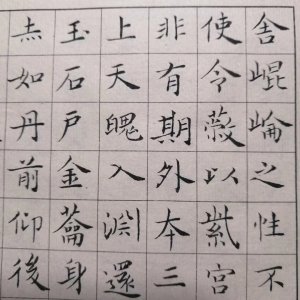 舍崐崘之性不
使令蔽以紫宮
非有期外本三
上天魄入淵還
玉石戶金蘥身
赤如丹前仰後